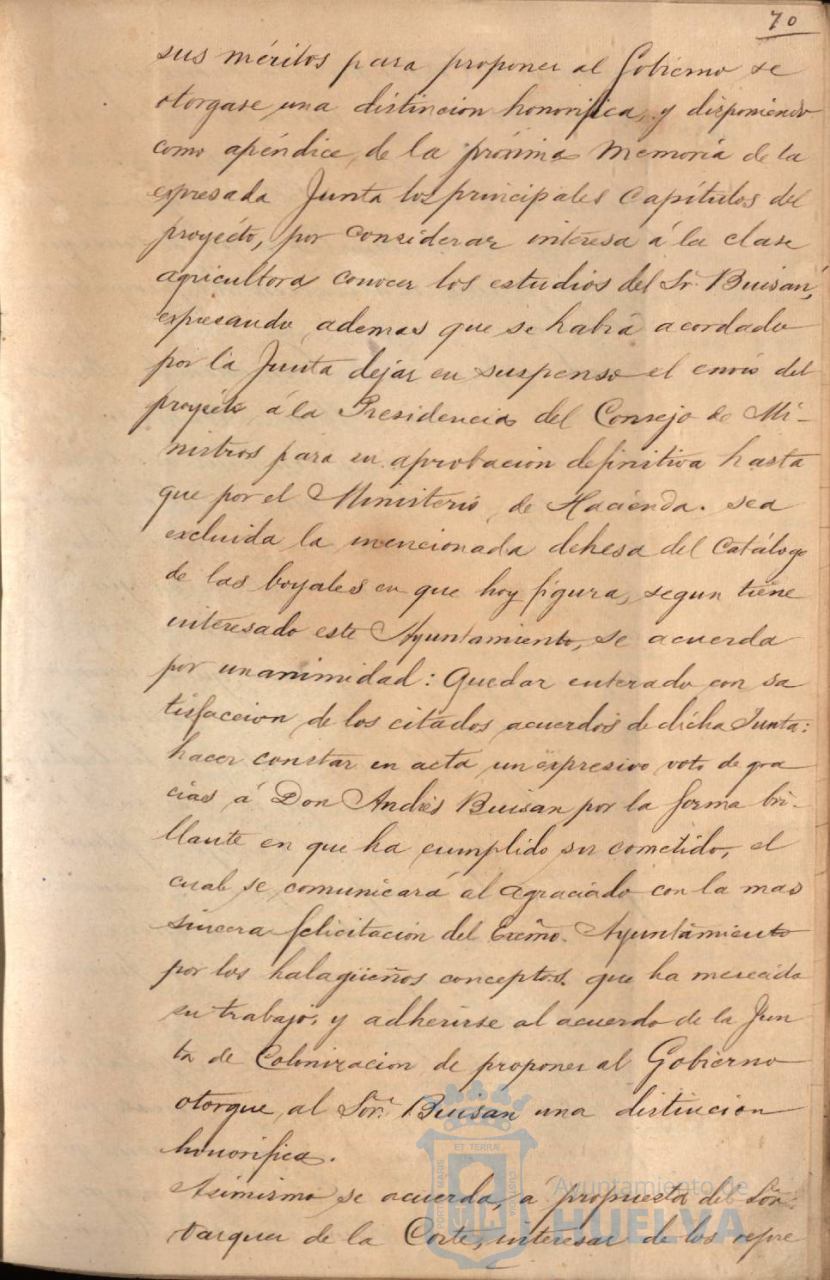 70
sus méritos para proponer al Gobierno se
otorgase una distincion honorifica, y disponiendo
como apéndice de la próxima Memoria de la
expresada Junta los principales Capítulos del
proyecto, por considerar interesa á la clase
agricultora conocer los estudios del Sr. Buisán,
expresando ademas que se habia acordado
por la Junta dejar en suspenso el envio del
proyecto á la Presidencia del Consejo de Mi-
nistros para su aprobacion definitiva hasta
que por el Ministerio de Hacienda. sea
excluida la mencionada dehesa del Catálogo
de las boyales en que hoy figura, segun tiene
interesado este Ayuntamiento, se acuerda
por unanimidad: Quedar enterado con sa
tisfaccion de los citados acuerdos de dicha Junta:
hacer constar en acta un expresivo voto de gra
cias á Don Andrés Buisan por la forma bri-
llante en que ha cumplido su cometido, el
cual se comunicará al agraciado con la mas
sincera felicitacion del Excmo. Ayuntamiento
por los halagüeños conceptos que ha merecido
su trabajo, y adherirse al acuerdo de la Jun
ta de Colonizacion de proponer al Gobierno
otorgue al Sor. Buisan una distincion
honorifica.
Asimismo se acuerda, a propuesta del Sor.
de la Corte, interesar de los repre
ET TERRAE
PORTUS MARIS
CUSTODIA
Ayuntamiento de
HUELVA